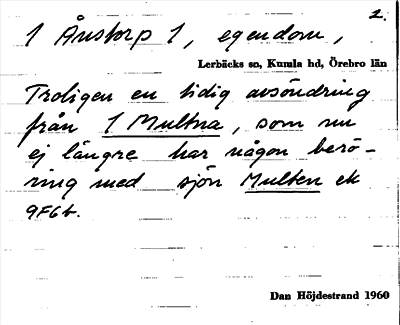 2.
1 Ånstorp 1, egendom,
Lerbäcks sn, Kumla hd, Örebro län
Troligen en tidig avsöndring
från 1 Multna, som nu
ej längre har någon berö-
ring med sjön Multen ek
9F6b.
Dan Höjdestrand 1960